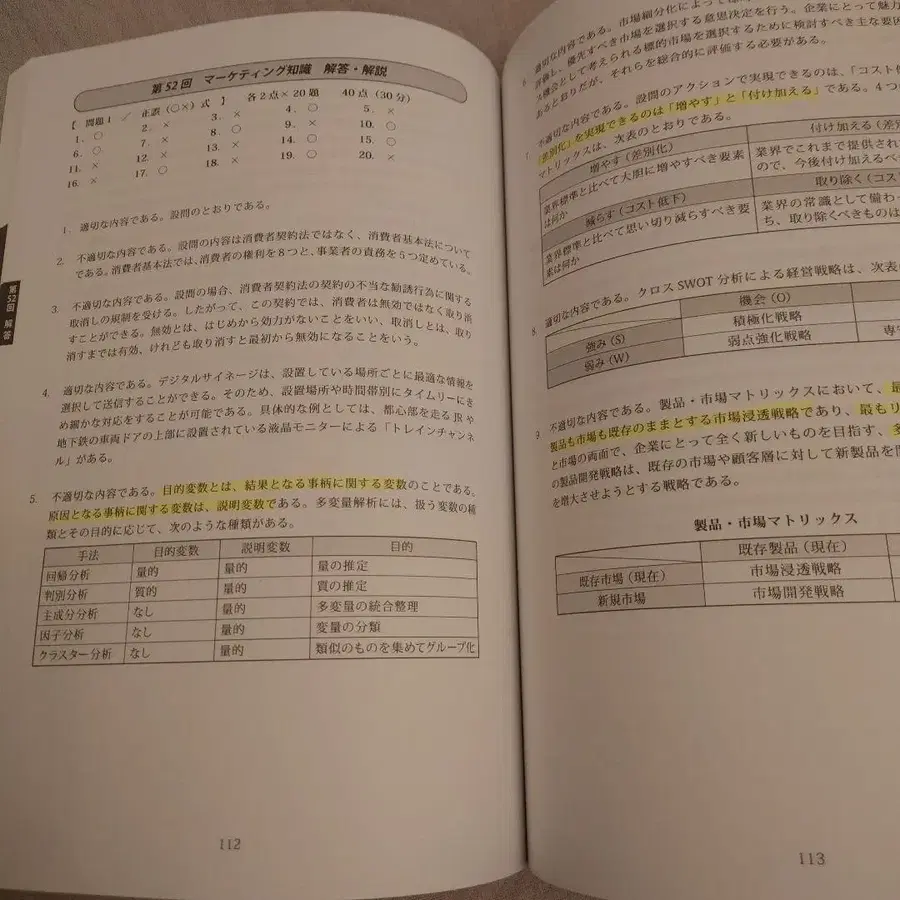 第52回 マーケティング知識 解答・解説
【 問題1 / 正誤(○×)式 】 各2点×20題 40点(30分)
1. ○ 2. × 3. × 4. ○ 5. ×
6. ○ 7. × 8. ○ 9. × 10. ○
11. × 12. × 13. × 14. ○ 15. ○
16. × 17. ○ 18. × 19. ○ 20. ×
1. 適切な内容である。設問のとおりである。
2. 不適切な内容である。設問の内容は消費者契約法ではなく、消費者基本法について
である。消費者基本法では、消費者の権利を8つと、事業者の責務を5つ定めている。
3. 不適切な内容である。設問の場合、消費者契約法の契約の不当な勧誘行為に関する
取消しの規制を受ける。したがって、この契約では、消費者は無効ではなく取り消
すことができる。無効とは、はじめから効力がないことをいい、取消しとは、取り
消すまでは有効、けれども取り消すと最初から無効になることをいう。
4. 適切な内容である。デジタルサイネージは、設置している場所ごとに最適な情報を
選択して送信することができる。そのため、設置場所や時間帯別にタイムリーにき
め細かな対応をすることが可能である。具体的な例としては、都心部を走るJRや
地下鉄の車両ドアの上部に設置されている液晶モニターによる「トレインチャンネ
ル」がある。
5. 不適切な内容である。目的変数とは、結果となる事柄に関する変数のことである。
原因となる事柄に関する変数は、説明変数である。多変量解析には、扱う変数の種
類とその目的に応じて、次のような種類がある。
手法 目的変数 説明変数 目的
回帰分析 量的 量的 量の推定
判別分析 質的 量的 質の推定
主成分分析 なし 量的 多変量の統合整理
因子分析 なし 量的 変量の分類
クラスター分析 なし 量的 類似のものを集めてグループ化
112
第52回 解答
6. 適切な内容である。市場細分化によって
評価し、優先すべき市場を選択する意思決定を行う。企業にとって魅力
ス機会として考えられる標的市場を選択するために検討すべき主な要因
あるとおりだが、それらを総合的に評価する必要がある。
7. 不適切な内容である。設問のアクションで実現できるのは、「コスト低
「差別化」を実現できるのは「増やす」と「付け加える」である。4つ
マトリックスは、次表のとおりである。
増やす(差別化) 付け加える(差別
業界標準と比べて大胆に増やすべき要素 業界でこれまで提供され
は何か ので、今後付け加えるべ
減らす(コスト低下) 取り除く(コス
業界標準と比べて思い切り減らすべき要 業界の常識として備わっ
素は何か ち、取り除くべきものは
8. 適切な内容である。クロスSWOT分析による経営戦略は、次表
機会(O)
強み(S) 積極化戦略
弱み(W) 弱点強化戦略 専
9. 不適切な内容である。製品・市場マトリックスにおいて、最
製品も市場も既存のままとする市場浸透戦略であり、最もリ
と市場の両面で、企業にとって全く新しいものを目指す、多
の製品開発戦略は、既存の市場や顧客層に対して新製品を
を増大させようとする戦略である。
製品・市場マトリックス
既存製品(現在)
既存市場(現在) 市場浸透戦略
新規市場 市場開発戦略
113